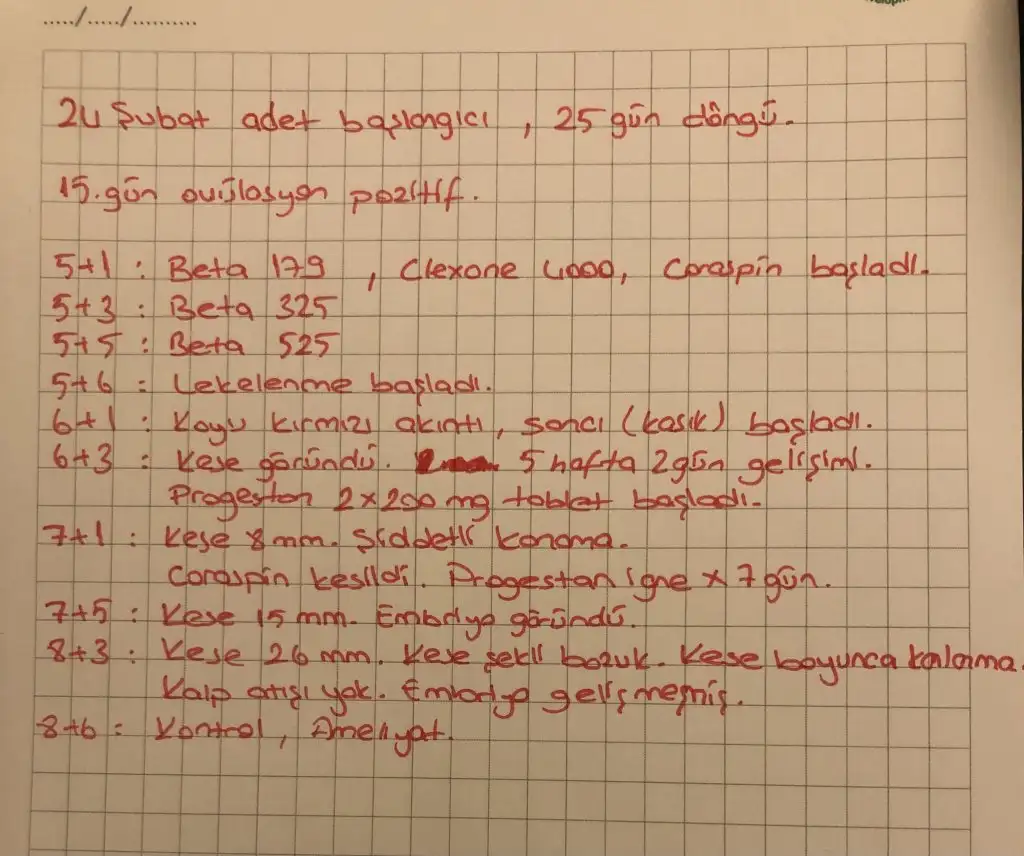 ...../...../..........
24 Şubat adet başlangıcı , 25 gün döngü.
15.gün ovülasyon pozitif.
5+1 : Beta 179 , Clexane 4000, Coraspin başladı.
5+3 : Beta 325
5+5 : Beta 525
5+6 : Lekelenme başladı.
6+1 : Koyu kırmızı akıntı, sancı (kasık) başladı.
6+3 : Kese göründü. 5 hafta 2 gün gelişimi.
Progestan 2x200 mg tablet başladı.
7+1 : Kese 8 mm. Şiddetli kanama.
Coraspin kesildi. Progestan iğne x 7 gün.
7+5 : Kese 15 mm. Embriyo göründü.
8+3 : Kese 26 mm. Kese şekli bozuk. Kese boyunca kalama.
Kalp atışı yok. Embriyo gelişmemiş.
8+6 : Kontrol, Ameliyat.